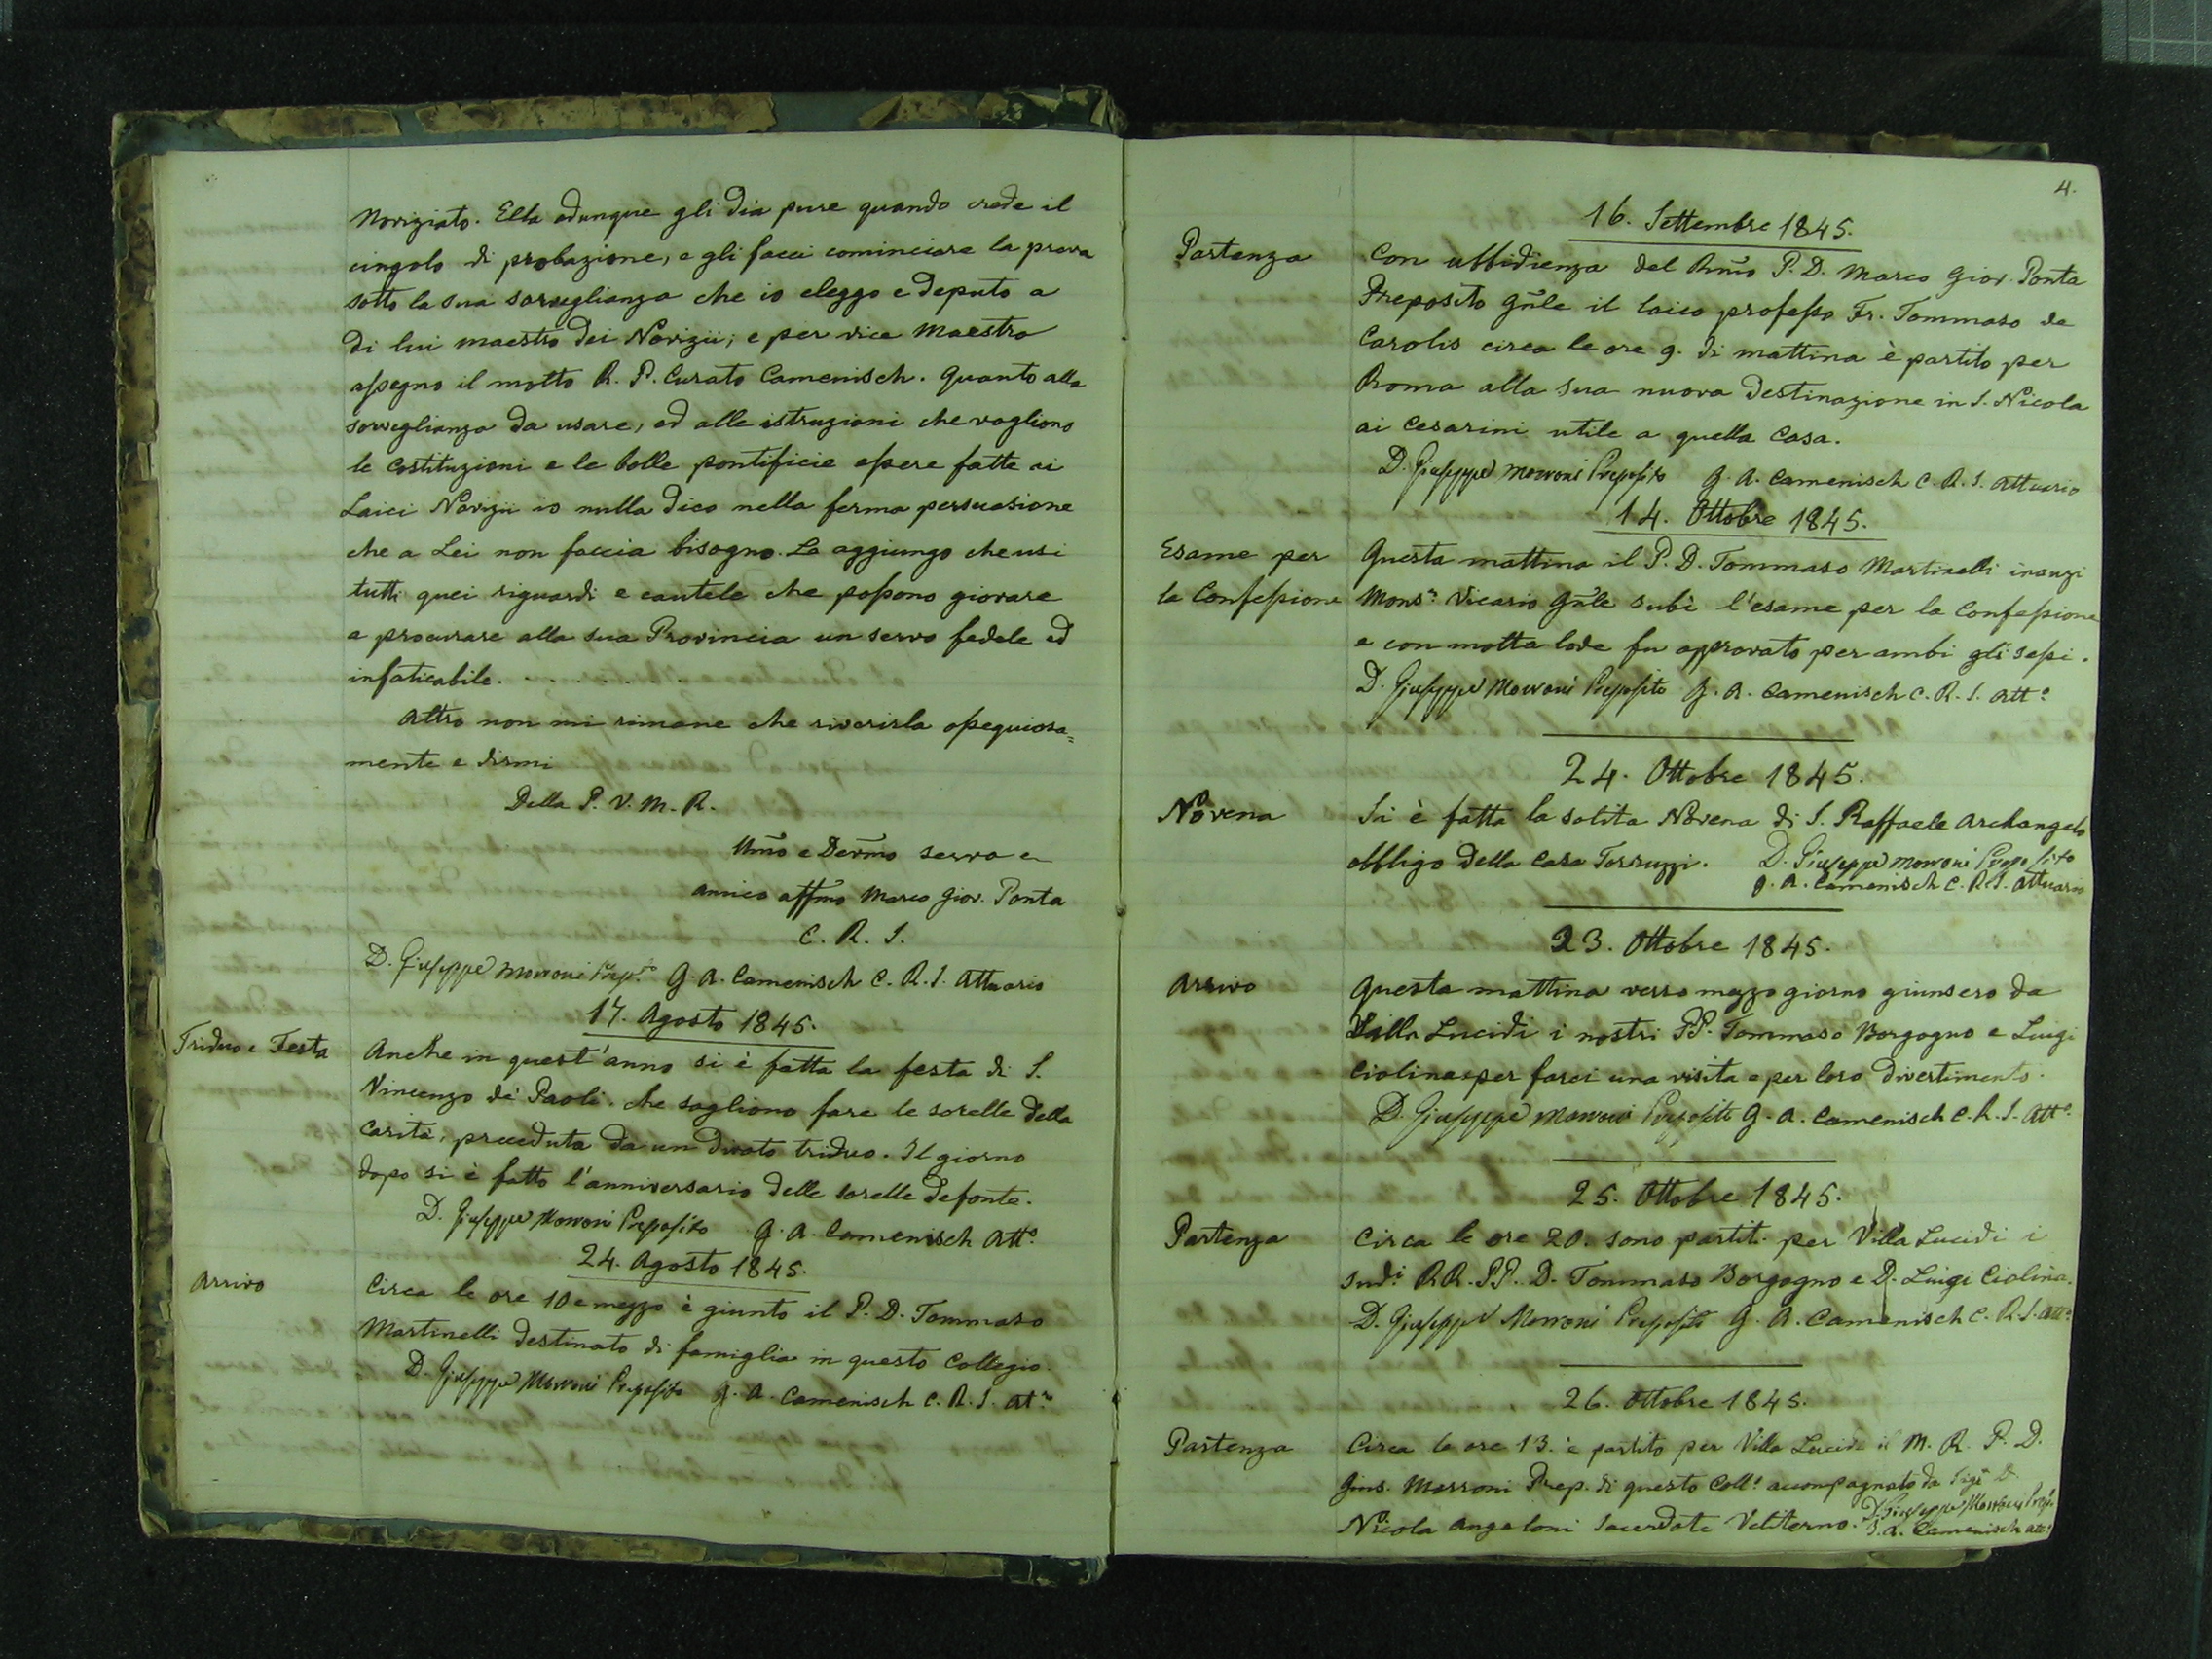 Noviziato. Ella adunque gli dia pure quando crede il
cingolo di probazione, e gli facci cominciare la prova
sotto la sua sorveglianza che io eleggo e deputo a
di lui maestro dei Novizii; e per vice Maestro
assegno il molto R. P. Curato Camenisch. Quanto alla
sorveglianza da usare, ed alle istruzioni che vogliono
le Costituzioni e le bolle pontificie essere fatte ai
Laici Novizii io nulla dico nella ferma persuasione
che a Lei non faccia bisogno. Lo aggiungo che usi
tutti quei riguardi e cautele che possono giovare
a procurare alla sua Provincia un servo fedele ed
infaticabile. . . . . . . .
Altro non mi rimane che riverirla ossequiosa=
mente e dirmi
Della P. V. M. R.
Umo e Devmo servo e
amico affmo Marco Giov. Ponta
C. R. S.
D. Giuseppe Morroni Prepto G. A. Camenisch C. R. S. Attuario
17. Agosto 1845.
Triduo e Festa
Anche in quest'anno si è fatta la festa di S.
Vincenzo de' Paoli, che sogliono fare le sorelle della
Carità, preceduta da un divoto triduo. Il giorno
dopo si è fatto l'anniversario delle sorelle defonte.
D. Giuseppe Morroni Preposito G. A. Camenisch Atto
24. Agosto 1845.
Arrivo
Circa le ore 10 e mezzo è giunto il P. D. Tommaso
Martinelli destinato di famiglia in questo Collegio.
D. Giuseppe Morroni Preposito G. A. Camenisch C. R. S. Atto
4.
16. Settembre 1845.
Partenza
Con ubbidienza del Rmo P. D. Marco Giov. Ponta
Preposito Gnle il laico professo Fr. Tommaso de
Carolis circa le ore 9. di mattina è partito per
Roma alla sua nuova destinazione in S. Nicola
ai Cesarini utile a quella Casa.
D. Giuseppe Morroni Preposito G. A. Camenisch C. R. S. Attuario
14. Ottobre 1845.
Esame per
la Confessione
Questa mattina il P. D. Tommaso Martinelli inanzi
Monsr Vicario Gnle subì l'esame per la Confessione
e con molta lode fu approvato per ambi gli sessi.
D. Giuseppe Morroni Preposito G. A. Camenisch C. R. S. Atto
24. Ottobre 1845.
Novena
Si è fatta la solita Novena di S. Raffaele Archangelo
obbligo della Casa Torruzzi. D. Giuseppe Morroni Preposito
G. A. Camenisch C. R. S. Attuario
23. Ottobre 1845.
Arrivo
Questa mattina verso mezzo giorno giunsero da
Villa Lucidi i nostri PP. Tommaso Borgogno e Luigi
Ciolina per farci una visita e per loro divertimento.
D. Giuseppe Morroni Preposito G. A. Camenisch C. R. S. Atto
25. Ottobre 1845.
Partenza
Circa le ore 20. sono partiti per Villa Lucidi i
sudi RR. PP. D. Tommaso Borgogno e D. Luigi Ciolina.
D. Giuseppe Morroni Preposito G. A. Camenisch C. R. S. Atto
26. Ottobre 1845.
Partenza
Circa le ore 13. è partito per Villa Lucidi il M. R. P. D.
Gius. Morroni Prep. di questo Collo accompagnato da Sigr D.
Nicola Angeloni Sacerdote Veliterno. D. Giuseppe Morroni Prepo
G. A. Camenisch Atto